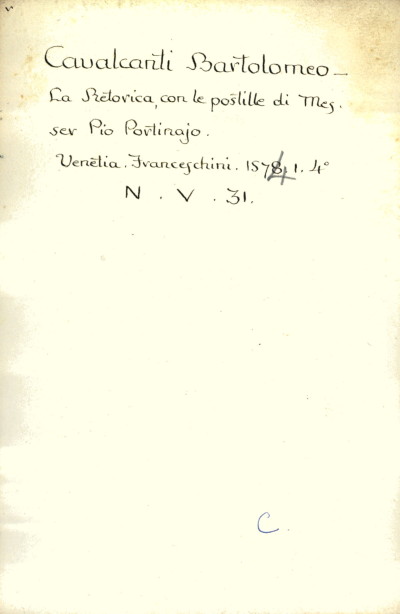 v
Cavalcanti Bartolomeo —
La Retorica, con le postille di Mes.
ser Pio Portinajo.
Venetia. Franceschini. 1574. 1. 4°
N . V . 31.
C.